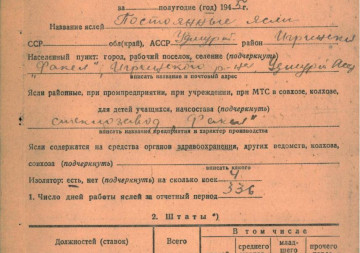 за полугодие (год) 194
Название яслей Постоянные ясли
ССР обл(край), АССР Удмурт. район Игринский
Населенный пункт: город, рабочий поселок, селение (подчеркнуть)
"Факел", Игринского р-на Удмурт
вписать название и почтовый адрес
Ясли районные, при промпредприятии, при учреждении, при МТС в совхозе, колхозе,
для детей учащихся, начсостава (подчеркнуть)
стеклозавод "Факел"
вписать название предприятия и характер производства
Ясли содержатся на средства органов здравоохранения, других ведомств, колхоза,
совхоза (подчеркнуть)
вписать какого
Изолятор: есть, нет (подчеркнуть) на сколько коек 4
1. Число дней работы яслей за отчетный период 336
2. Штаты *)
Должностей (ставок) Всего В том числе
среднего младшего прочего